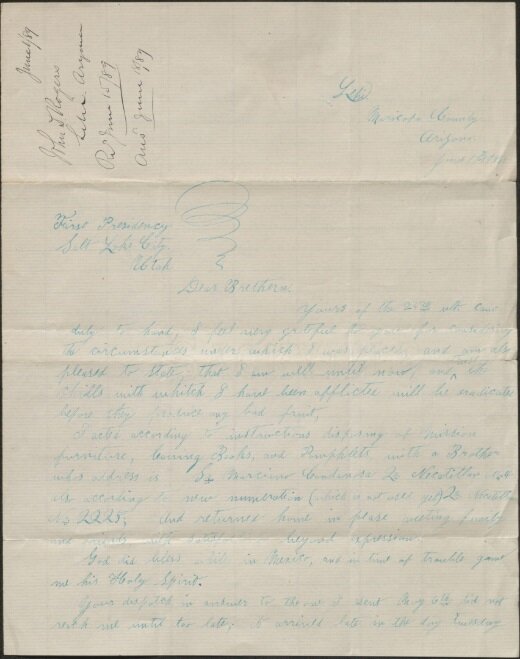 June 1/89
John T. Rogers
Lehi Arizona
Rd June 15/89
Ans June /89
Lehi
Maricopa County
Arizona
June
First Presidency
Salt Lake City
Utah
Dear Brethern:
Yours of the 25th ult came
duly to hand, I feel very grateful to you for considering
the circumstances under which I was placed, and am also
pleased to state that I am well until now, and the
Chills with whitch I have been afflicted will be eradicated
before they produce any bad fruit,
I acted according to instructions disposing of Mission
furniture, leaving Books, and Pamphlets, with a Brother
whos address is Sr Marciano 2a Necotitlan
or acording to new numeration (which is not used yet) 2a
No 2228; And returned home in peace meeting family
and friends with beyond expression.
God did bless while in Mexico, and in time of trouble gave
me his Holy Spirit.
Your dispatch in answer to the one I sent May 6th did not
reach me until too late; it arrived late in the day Tuesday